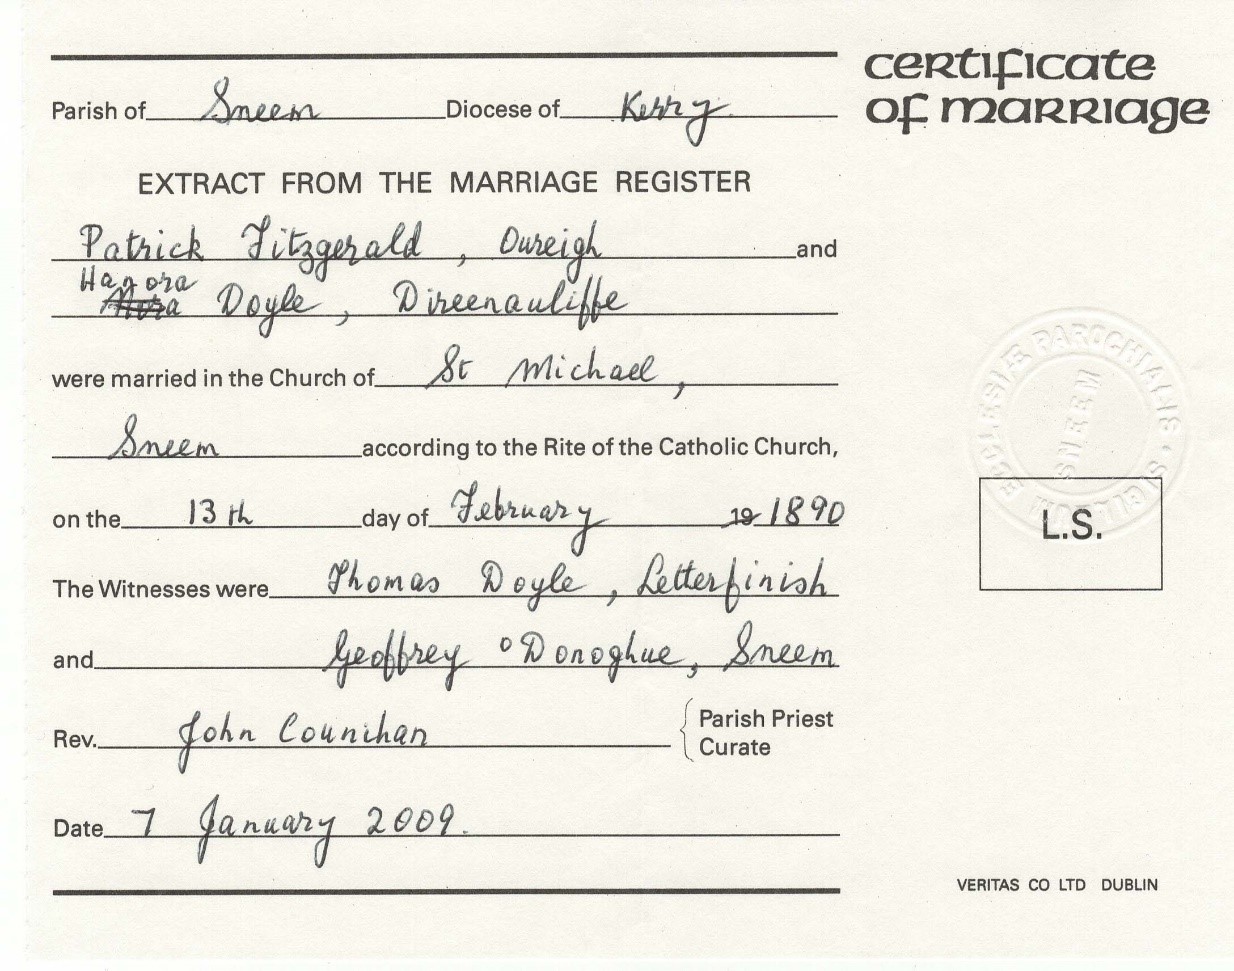 certificate
of marriage
Parish of Sneem Diocese of Kerry.
EXTRACT FROM THE MARRIAGE REGISTER
Patrick Fitzgerald, Oureigh and
Hanora
Nora Doyle, Direenauliffe
were married in the Church of St Michael,
Sneem according to the Rite of the Catholic Church,
on the 13th day of February 19 1890
The Witnesses were Thomas Doyle, Letterfinish
and Geoffrey O'Donoghue, Sneem
Rev. John Counihan Parish Priest
Curate
Date 7 January 2009.
SIGILLUM ECCLESIÆ PAROCHIALIS.
SNEEM
L.S.
VERITAS CO LTD DUBLIN